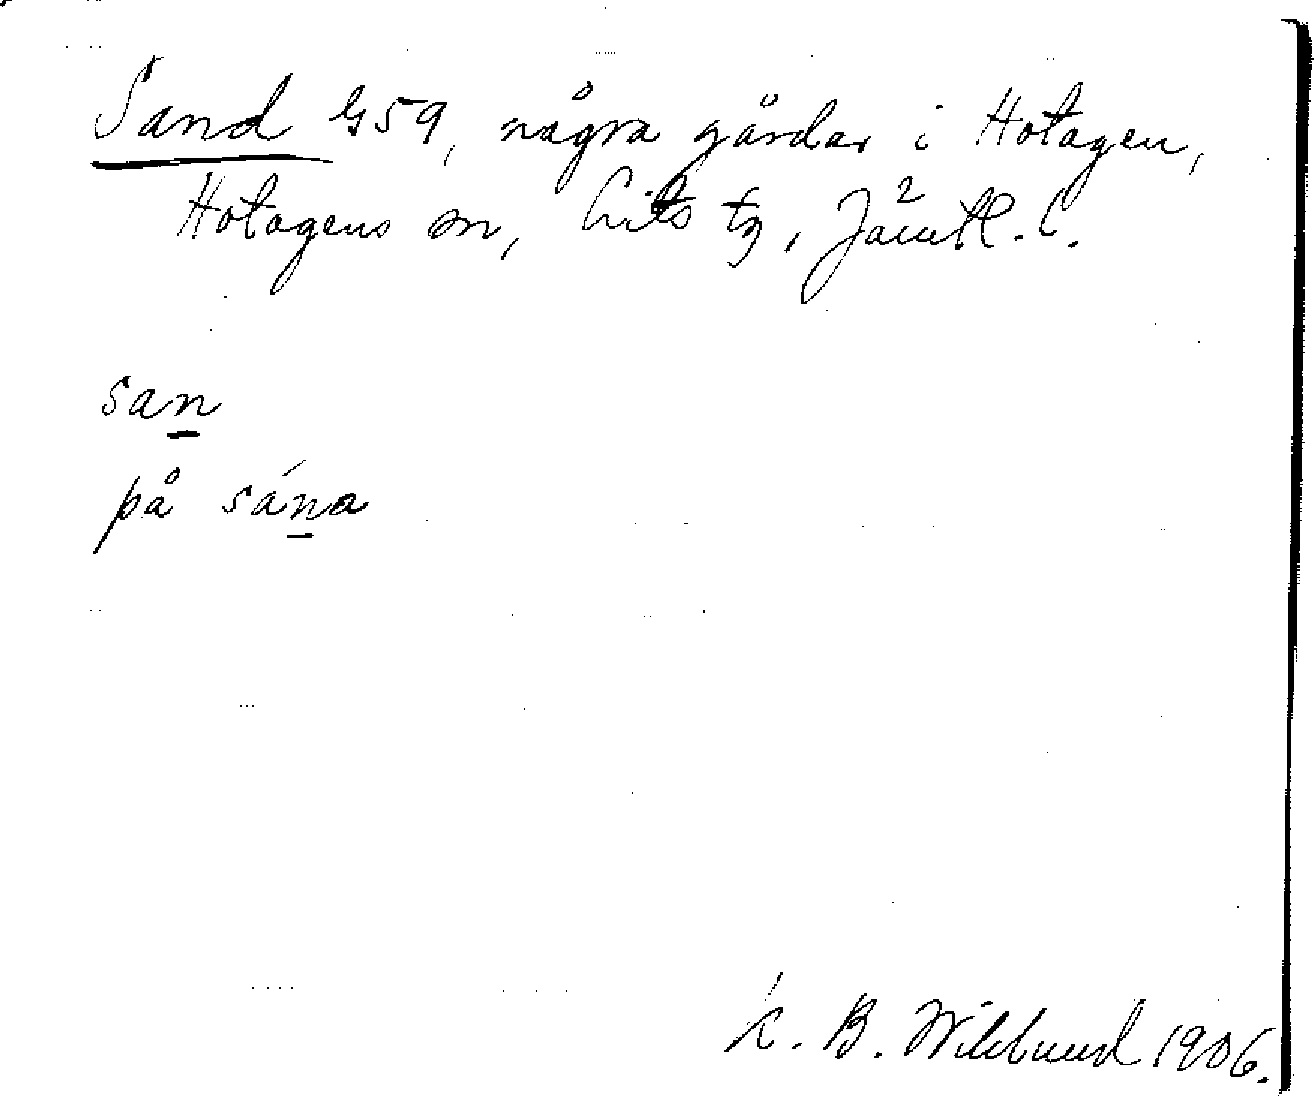 Sand G59, några gårdar i Hotagen,
Hotagens sn, Lits tg, Jämtl. l.
san
på sána
K. B. Wiklund 1906.